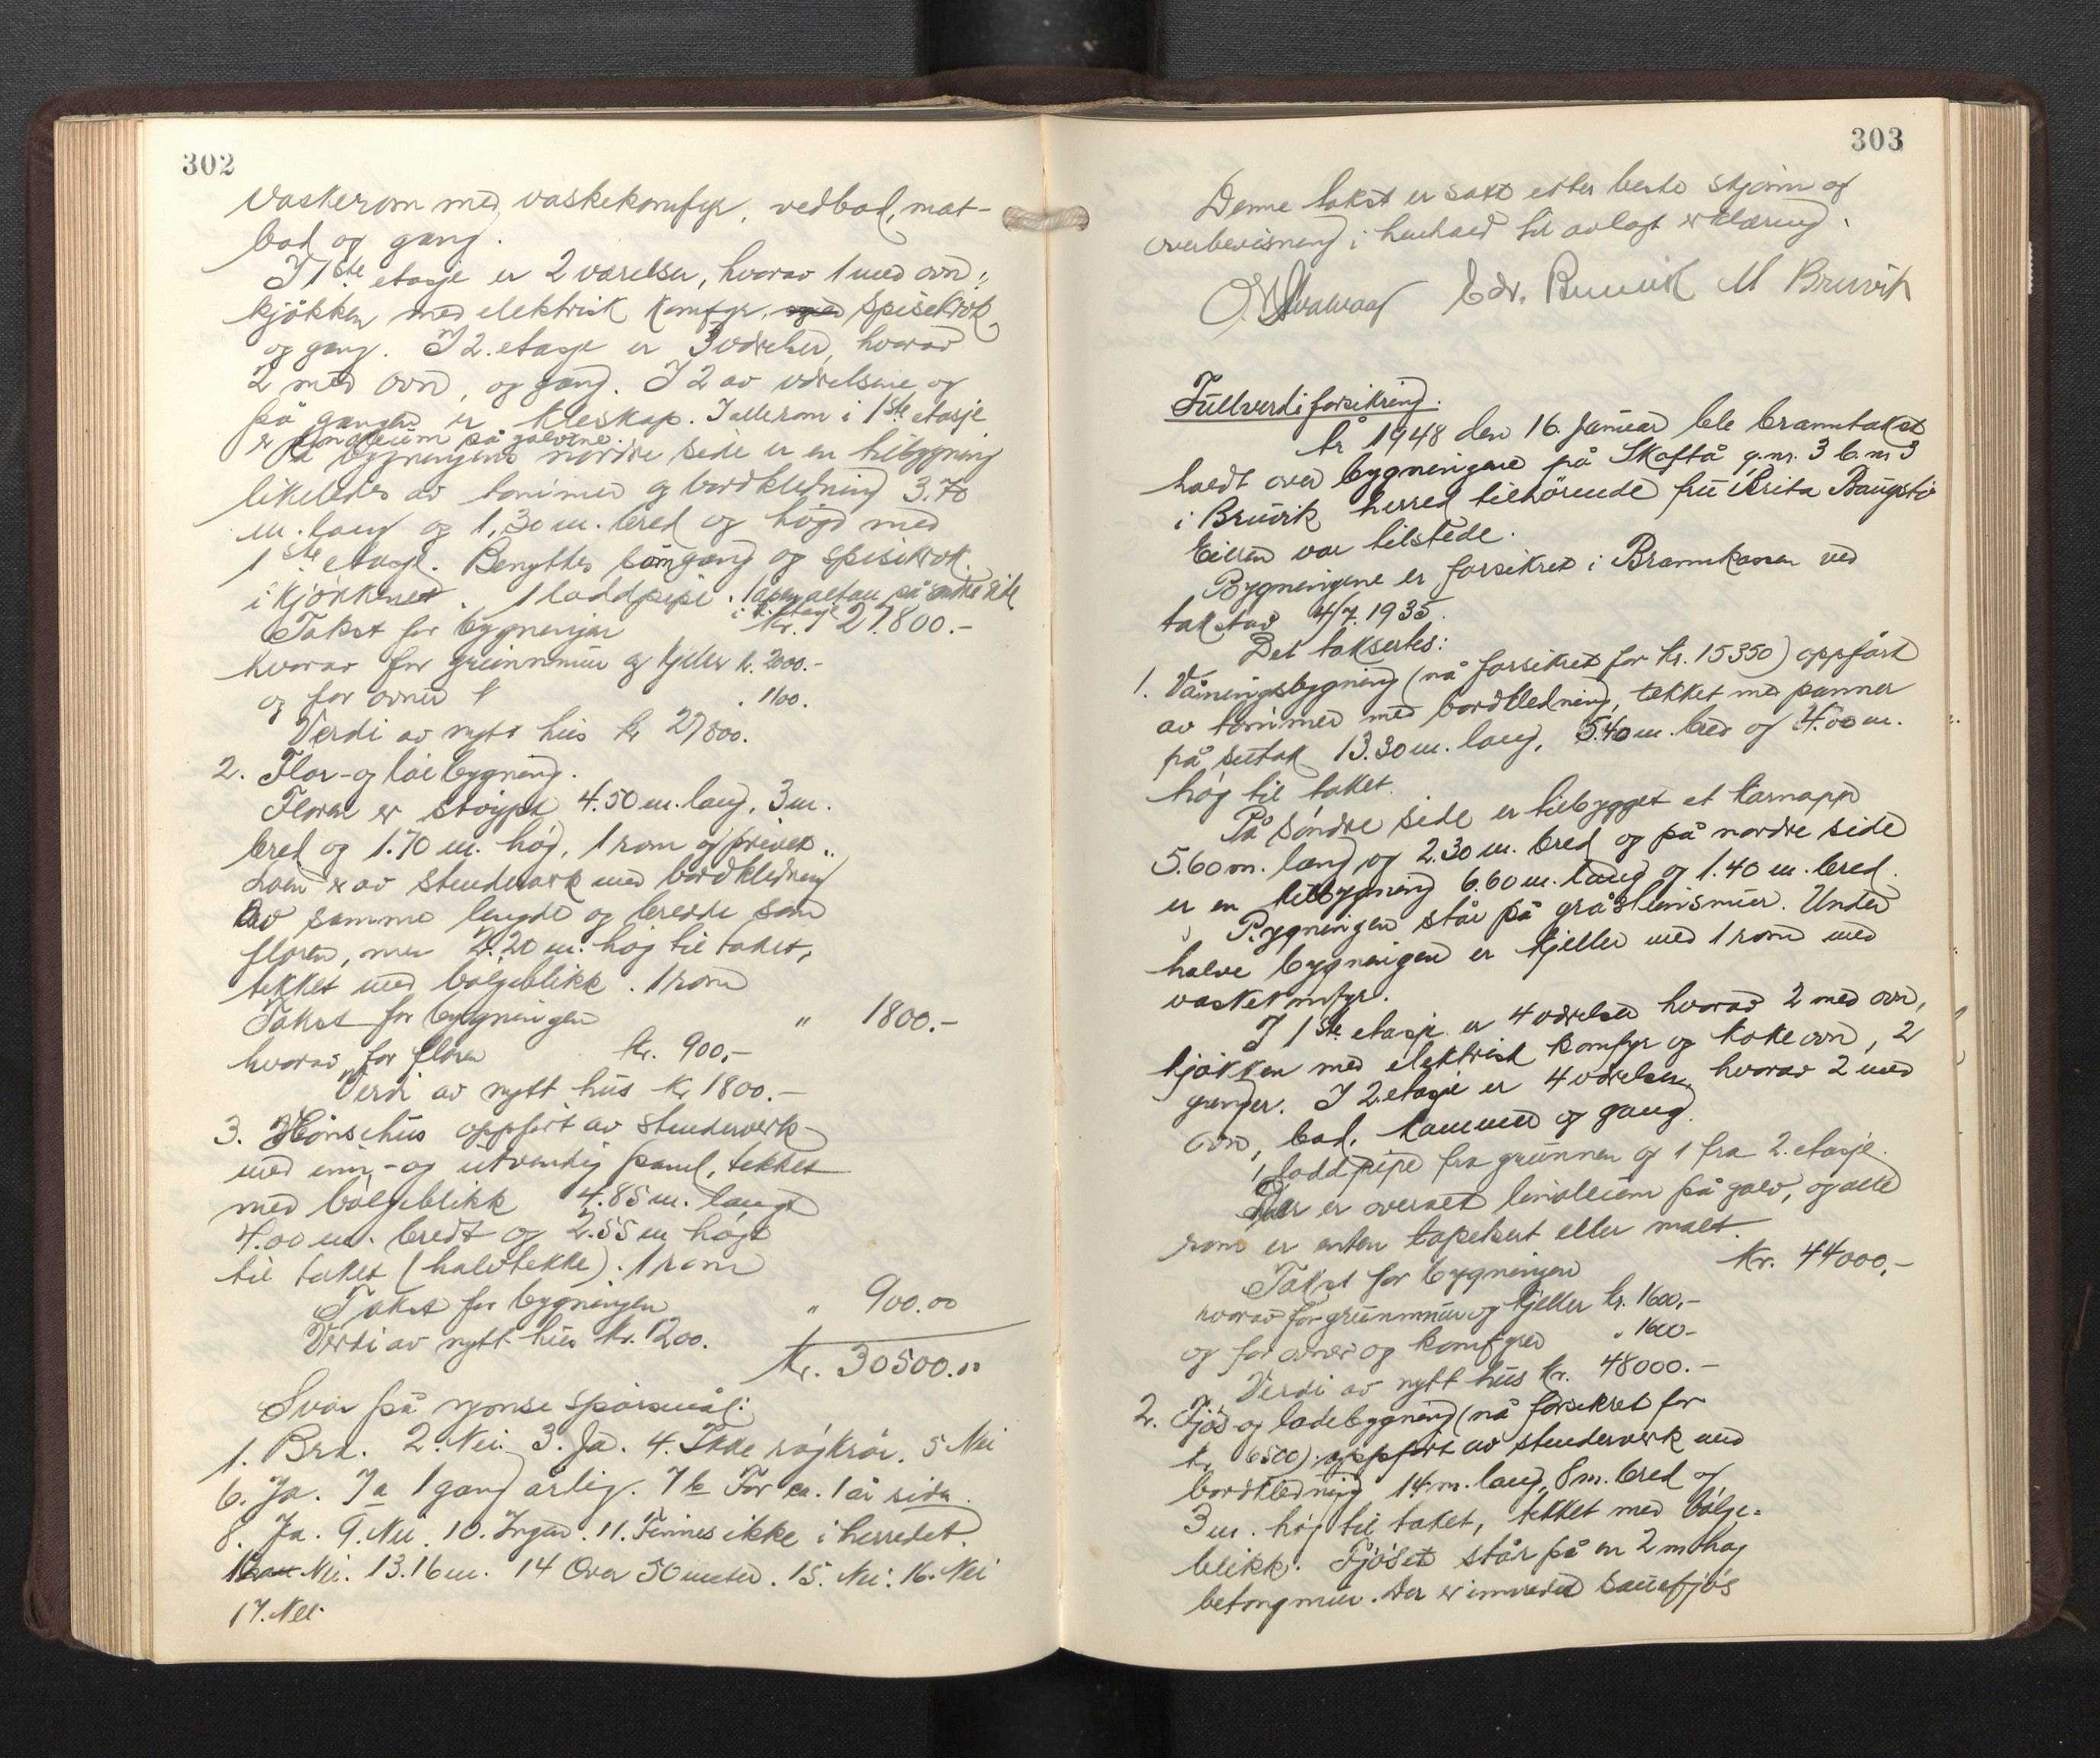 302
Vaskerom med vaskekomfyr, vedbod, mat-
bod og gang.
I 1ste etasje er 2 værelser, hvorav 1 med ovn,
kjøkken med elektrisk komfyr, med spisekrok
og gang. I 2. etasje er 3 værelser, hvorav
2 med ovn, og gang. I 2 av værelsene og
på gangen er kleskap. I alle rom i 1ste etasje
er linoleum på golvene.
På bygningens nordre side er en tilbygning
likeledes av tømmer og bordkledning 3.70
m. lang og 1.30 m. bred og høgd med
1ste etasje. Benyttes som gang og spisekrok
i kjøkkenet. 1 loddpipe. 1 åpen altan på søndre side
i 2. etasje
Takst for bygningen kr. 27.800.-
hvorav for grunnmur og kjeller kr. 2000.-
og for ovner " 1100.
Verdi av nytt hus kr 27800.
2. Flor- og løebygning.
Floren er støypt 4.50 m. lang, 3 m.
bred og 1.70 m. høg, 1 rom og privet.
Løen er av stenderverk med bordkledning
av samme lengde og bredde som
floren, men 2.20 m. høg til taket,
tekket med bølgeblikk. 1 rom
Takst for bygningen " 1800.-
hvorav for floren kr. 900.-
Verdi av nytt hus kr 1800.-
3. Hønsehus oppført av stenderverk
med inn- og utvendig panel, tekket
med bølgeblikk 4.85 m. langt
4.00 m. bredt og 2.55 m høgt
til taket (halvtekke). 1 rom
Takst for bygningen " 900.00
Verdi av nytt hus kr. 1200.
kr. 30500.00
Svar på rynse spørsmål:
1. Bra. 2. Nei. 3. Ja. 4. Ikke røykrør. 5 Nei
6. Ja. 7a 1 gang årlig. 7b For ca. 1 år siden.
8. Ja. 9. Nei. 10. Ingen. 11. Finnes ikke i herredet.
12. Nei. 13. 16 m. 14 Over 50 meter. 15. Nei. 16. Nei
17. Nei
303
Denne takst er satt etter beste skjønn og
overbevisning i henhold til avlagt erklæring.
Edv. Bruvik M Bruvik
Fullverdiforsikring.
År 1948 den 16. januar ble branntakst
holdt over bygningene på Skaftå g.nr. 3 b.nr 3
i Bruvik herred tilhørende fru Brita Baugstø
Eieren var tilstede.
Bygningene er forsikret i Brannkassen ved
takst av 4/7. 1935.
Det takseres:
1. Våningsbygning (nå forsikret for kr. 15350) oppført
av tømmer med bordkledning, tekket med panner
på sutak 13.30 m. lang, 5.40 m. bred og 4.00 m.
høg til taket.
På søndre side er tilbygget et karnapp
5.60 m. lang og 2.30 m. bred og på nordre side
er en tilbygning 6.60 m. lang og 1.40 m. bred.
Bygningen står på gråsteinsmur. Under
halve bygningen er kjeller med 1 rom med
vaskekomfyr.
I 1ste etasje er 4 værelser hvorav 2 med ovn,
kjøkken med elektrisk komfyr og kokeovn, 2
ganger. I 2. etasje er 4 værelser, hvorav 2 med
ovn, bad, kammer og gang.
1 loddpipe fra grunnen og 1 fra 2. etasje.
Der er overalt linoleum på golv, og alle
rom er enten tapetsert eller malt.
Takst for bygningen kr. 44000.-
hvorav for grunnmur og kjeller kr. 1600.-
og for ovner og komfyrer " 1600-
Verdi av nytt hus kr. 48000.-
2. Fjøs og ladebygning (nå forsikret for
kr 6500) oppført av stenderverk med
bordkledning 14 m. lang, 8 m. bred og
3 m. høg til taket, tekket med bølge-
blikk. Fjøset står på en 2 m høg
betongmur. Der er innredet sauefjøs